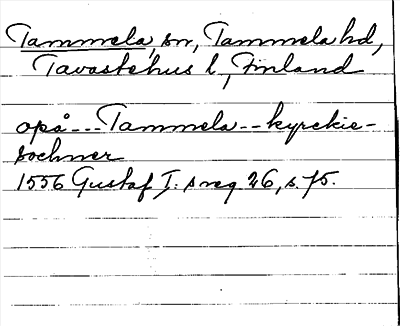 Tammela, sn, Tammela hd,
Tavastehus l, Finland
opå --- Tammela -- kyrckie-
sochner
1556 Gustaf I. s reg 26, s. 75.